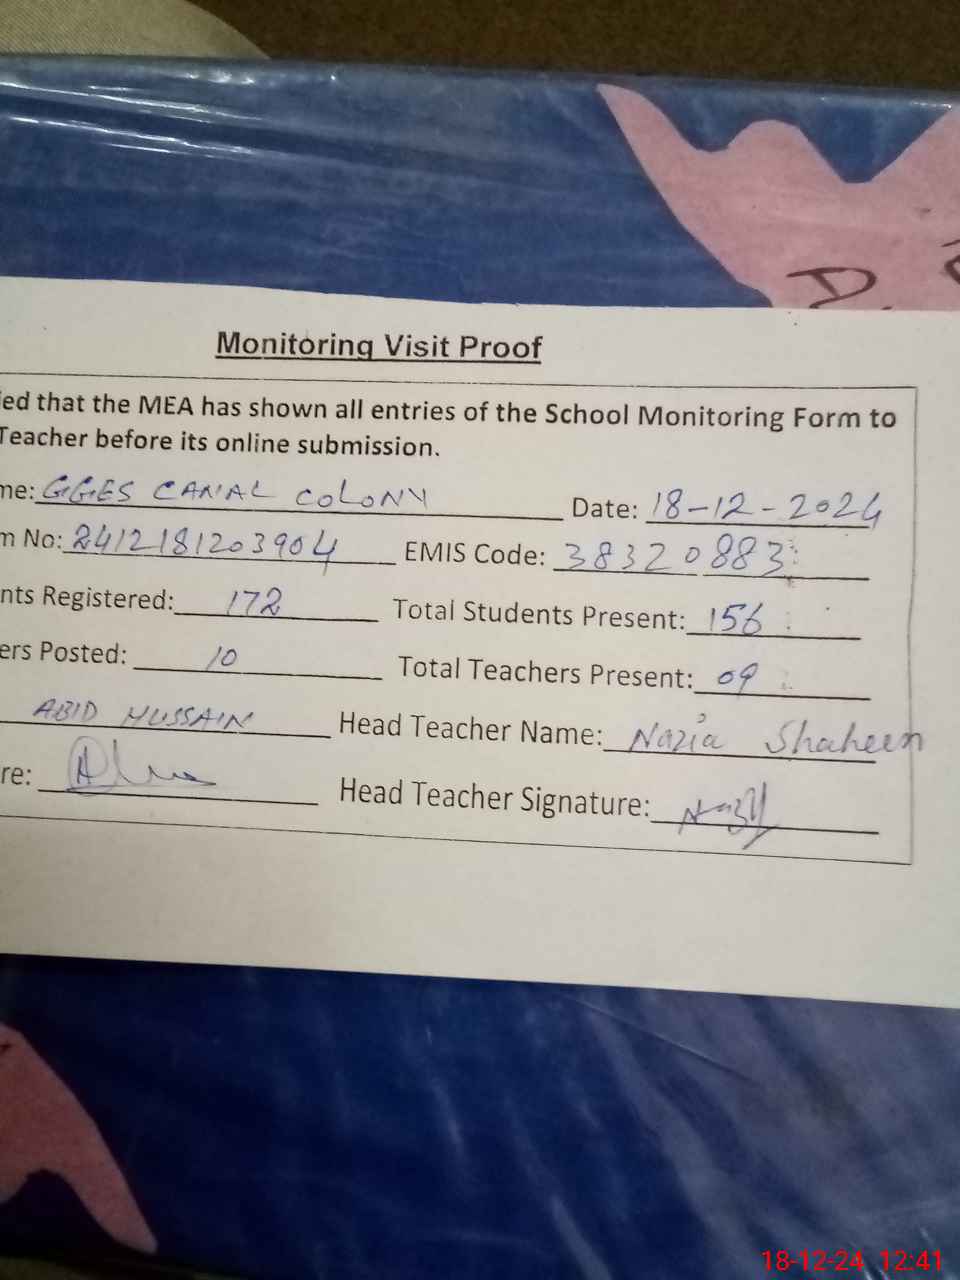 D.
Monitoring Visit Proof
ied that the MEA has shown all entries of the School Monitoring Form to
Teacher before its online submission.
me: GGES CANAL COLONY Date: 18-12-2024
m No: 2412181203904 EMIS Code: 38320883
nts Registered: 172 Total Students Present: 156
ers Posted: 10 Total Teachers Present: 09
ABID HUSSAIN Head Teacher Name: Nazia Shaheen
re: Head Teacher Signature:
18-12-24 12:41